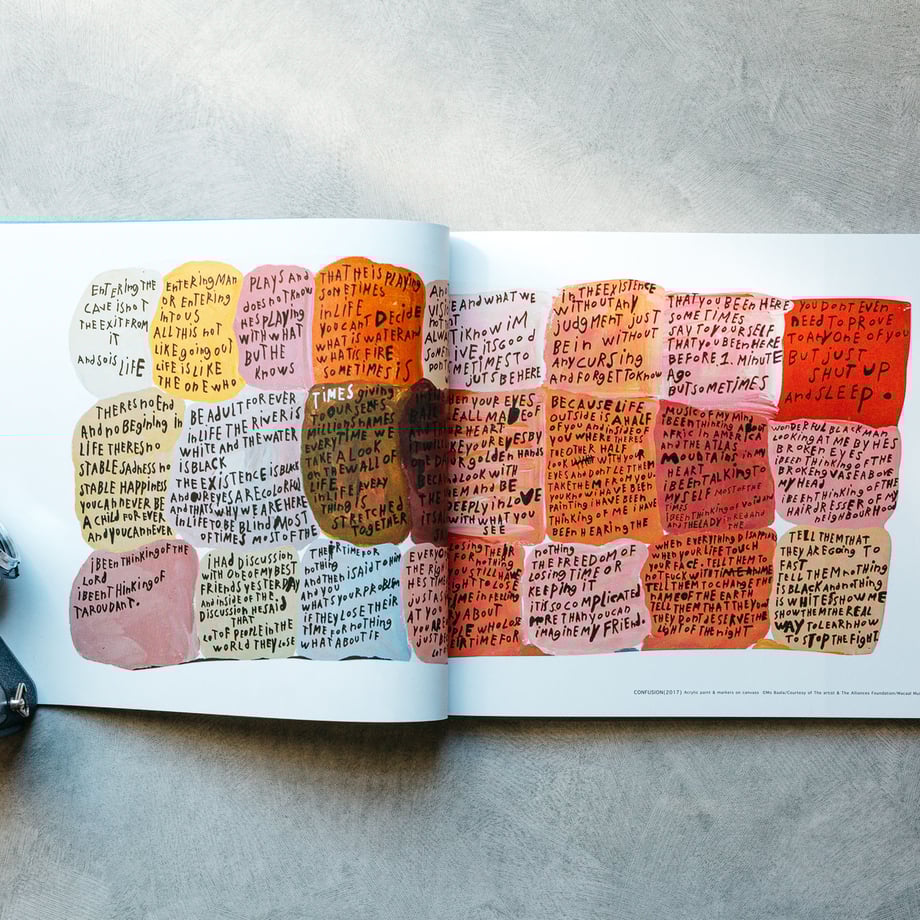 ENTERING THE
CAVE IS NOT
THE EXIT FROM
IT
AND SO IS LIFE
ENTERING MAN
OR ENTERING
INTO US
ALL THIS NOT
LIKE GOING OUT
LIFE IS LIKE
THE ONE WHO
PLAYS AND
DOES NOT KNOW
HES PLAYING
WITH WHAT
BUT HE
KNOWS
THAT HE IS PLAYING
SOMETIMES
IN LIFE
YOU CANT DECIDE
WHAT IS WATER AND
WHAT IS FIRE
SOMETIMES IS
AND
VISI
NOT
ALWA
SOME
DONT
E AND WHAT WE
T I KNOW IM
IVE ITS GOOD
METIMES TO
JUTS BE HERE
IN THE EXISTENCE
WITHOUT ANY
JUDGMENT JUST
BE IN WITHOUT
ANY CURSING
AND FORGET TO KNOW
THAT YOU BEEN HERE
SOMETIMES
SAY TO YOURSELF
THAT YOU BEEN HERE
BEFORE 1. MINUTE
AGO
BUT SOMETIMES
YOU DONT EVEN
NEED TO PROVE
TO ANYONE OF YOU
BUT JUST
SHUT UP
AND SLEEP.
THERES NO END
AND NO BEGINING IN
LIFE THERES NO
STABLE SADNESS NO
STABLE HAPPINESS
YOU CAN NEVER BE
A CHILD FOR EVER
AND YOU CAN NEVER
BE ADULT FOR EVER
IN LIFE THE RIVER IS
WHITE AND THE WATER
IS BLACK
THE EXISTENCE IS BLACK
AND OUR EYES ARE COLORFUL
AND THATS WHY WE ARE HERE
IN LIFE TO BE BLIND MOST
OF TIMES MOST OF THE
TIMES GIVING
TO OUR SELFS
MILLIONS NAMES
EVERY TIME WE
TAKE A LOOK
ON THE WALL OF
LIFE EVERY
THING IS
STRETCHED
TOGETHER
HEN YOUR EYES
E ALL MADE OF
R HEART
KE YOUR EYES BY
UR GOLDEN HANDS
AND LOOK WITH
EM AND BE
DEEPLY IN LOVE
WITH WHAT YOU
SEE
BECAUSE LIFE
OUTSIDE IS A HALF
OF YOU AND INSIDE OF
YOU WHERE THERES
THE OTHER HALF
LOOK WITH YOUR
EYES AND DONT LET THEM
TAKE THEM FROM YOU
YOU KNOW I HAVE BEEN
PAINTING I HAVE BEEN
THINKING OF ME I HAVE
BEEN HEARING THE
MUSIC OF MY MIND
I BEEN THINKING ABOUT
AFRIC IN AMERICA
AND THE ATLAS
MOUTAINS IN MY
HEART
I BEEN TALKING TO
MYSELF MOST OF THE
TIMES
I BEEN THINKING OF VOID AND
WONDERFUL BLACK MAN
LOOKING AT ME BY HES
BROKEN EYES
I BEEN THINKING OF THE
BROKENG VASE ABOVE
MY HEAD
I BEEN THINKING OF THE
HAIRDRESSER OF MY
NEIGHBOURHOOD
I BEEN THINKING OF THE
LORD
I BEEN THINKING OF
TAROUDANT.
I HAD DISCUSSION
WITH ONE OF MY BEST
FRIENDS YESTERDAY
AND INSIDE OF THE
DISCUSSION HE SAID
THAT
LOT OF PEOPLE IN THE
WORLD THEY LOSE
THEIR TIME FOR
NOTHING
AND THEN I SAID TO HIM
AND YOU
WHATS YOUR PROBLEM
IF THEY LOSE THEIR
TIME FOR NOTHING
WHAT ABOUT IF
EVERYON
THE RIGH
HES TIME
JUST AS
AT YOU
YOU ARE
JUST RE
LOSING THEIR
FOR NOTHING
HT TO LOSE
E IN FEELING
Y ABOUT
PLE WHO LOSE
EIR TIME FOR
NOTHING
THE FREEDOM OF
LOSING TIME OR
KEEPING IT
IT IS SO COMPLICATED
MORE THAN YOU CAN
IMAGINE MY FRIEND.
WHEN EVERYTHING DISAPPEAR
WHEN YOUR LIFE TOUCH
YOUR FACE. TELL THEM TO
NOT FUCK WITH TIME
TELL THEM TO CHANGE THE
NAME OF THE EARTH
TELL THEM THAT THEY DONT
THEY DONT DESERVE THE
LIGHT OF THE NIGHT
TELL THEM THAT
THEY ARE GOING TO
FAST
TELL THEM NOTHING
IS BLACK AND NOTHING
IS WHITE SHOW ME
SHOW THEM THE REAL
WAY TO LEARN HOW
TO STOP THE FIGHT.
CONFUSION(2017) Acrylic paint & markers on canvass ©Mo Baala/Courtesy of The artist & The Alliances Foundation/Macaal Mu